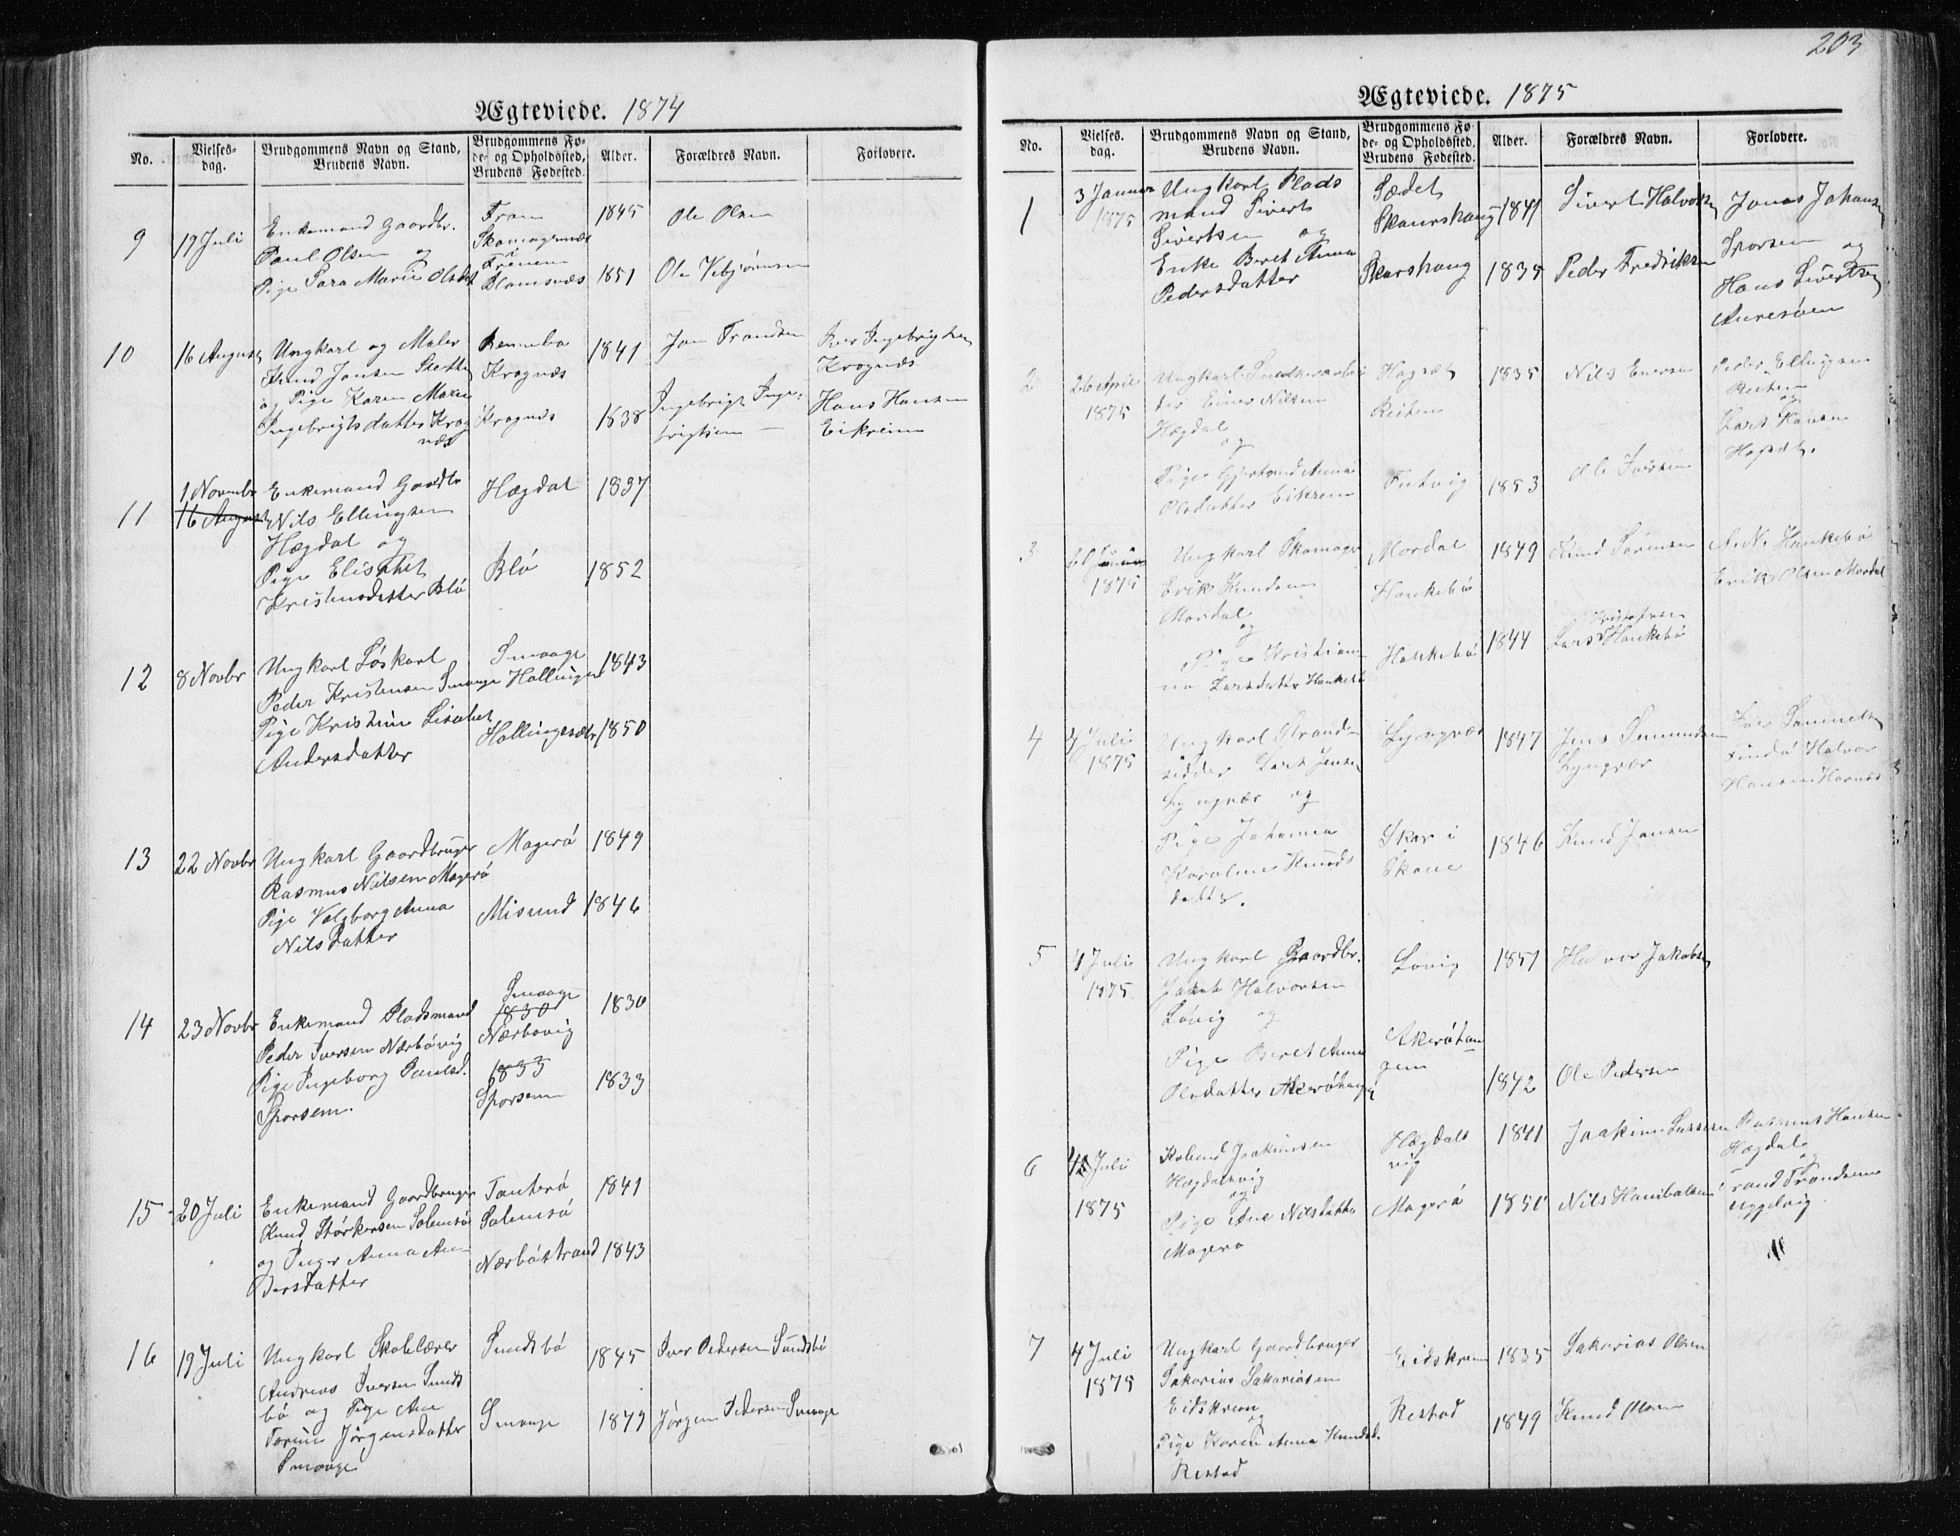 203
Ægteviede. 1874
No.
Vielses-
dag.
Brudgommens Navn og Stand,
Brudens Navn.
Brudgommens Fø-
de- og Opholdssted,
Brudens Fødested.
Alder.
Forældres Navn.
Forlovere.
9
17 Juli
Enkemand Gaardbr.
Paul Olsen og
Pige Sara Marie Olsdt
Blomsnæs
1845
1851
Ole Olsen
10
16 August
Ungkarl og Maler
Knud Jonsen
og Pige Karen Marie
Ingebrigtsdatter Krog
næs
Krognæs
Krognæs
1841
1838
Jon Trondsen
Ingebrigt Inge-
brigtsen
Iver Ingebrigtsen
Krognæs
Hans Hansen
Eikrem
11
1 Novembr
16 August
Enkemand Gaardbr
Nils Ellingsen
Hægdal og
Pige Elisabet
Kristensdatter Blø
Hægdal
Blø
1837
1852
12
8 Novbr
Ungkarl Løskarl
Peder Kristensen Smaage
Pige Kristine Lisabet
Andersdatter
Smaage
Hollingen
Hollingsæter
1843
1850
13
22 Novbr
Ungkarl Gaardbruger
Rasmus Nilsen Magerø
Pige Valborg Anna
Nilsdatter
Magerø
Misund
1849
1846
14
23 Novbr
Enkemand Pladsmand
Peder Iversen Nærbøvig
Pige Ingeborg Paulsd.
Sporsem.
Smaage
1830
Nærbøvig
1833
Sporsem
1830
1833
15
20 Juli
Enkemand Gaardbruger
Knud Størkersen Solemsø
og Inger Anna An-
dersdatter
Tauterø
Solemsø
Nærbøstrand
1841
1843
16
19 Juli
Ungkarl Skolelærer
Andreas Iversen Sunds
bø og Pige Ane
Torine Jørgensdatter
Smaage
Sundsbø
Smaage
1845
1849
Iver Pedersen Sundsbø
Jørgen Pedersen Smaage
Ægteviede. 1875
No.
Vielses.
dag.
Brudgommens Navn og Stand,
Brudens Navn.
Brudgommens Fø-
de- og Opholdssted,
Brudens Fødested.
Alder.
Forældres Navn.
Forlovere.
1
3 Januar
1875
Ungkarl Plads
mand Sivert
Sivertsen og
Enke Beret Anna
Pedersdatter
Sædet
Skarshaug
Skarshaug
1841
1835
Sivert Halvorsen
Peder Fredriksen
Jonas Johansen
Sporsem og
Hans Sivertsen
Auresøen
2
26 April
1875
Ungkarl Snedkerarbei
der Einer Nilsen
Hægdal
og
Pige Gjertrud Anna
Olsdatter Eikrem
Hagsæt
Reiten
1835
1853
Nils Enersen
Ole Iversen
Peder Ellingsen
Reiten
og
Lars Hansen
Hagsæt.
3
1875
Ungkarl Skomager
Erik Knudsen
Mordal
og
Pige Kristian
na Larsdatter Haukebø
Mordal
Haukebø
Haukebø
1849
1844
Knud Sørensen
Kristofersen
Lars Haukebø
A. N. Haukebø
Erik Olsen Mordal
4
4 Juli
1875
Ungkarl Strand-
sidder Lars Jensen
Lyngvær og
Pige Johanna
Karoline Knuds
datter.
Lyngvær
Skar i
1847
1846
Jens
Lyngvær
Knud Jansen
Halvor
Hansen
5
4 Juli
1875
Ungkarl Gaardbr.
Jakob Halvorsen
Løvig og
Pige Beret Anna
Olsdatter Akerøhaugen
Lovig
Akerøhau
gen
1851
1842
Halvor Jakobsen
Ole Pedersen
6
Juli
1875
Joakimsen
Hægdalsvig
og
Pige Ane Nilsdatter
Magerø
Hægdals
vig
Magerø
1841
1851
Joakim Larsen
Nils Hanibalsen
Rasmus Hansen
Hægdal
og
Trond Trondsen
7
4 Juli
1875
Ungkarl Gaardbruger
Sakarias Sakariasen
Eidskrem
og
Pige Karen Anna Knudsd.
Restad
Eidskrem
Restad
1835
1849
Sakarias Olsen
Knud Olsen